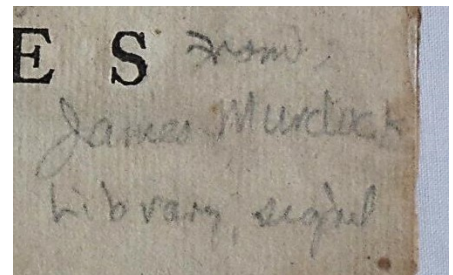 ES From
James Murdock
Library, sign'd